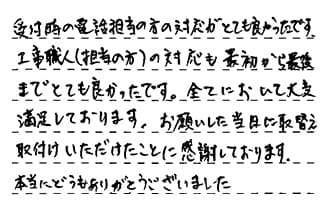 受付時の電話担当の方の対応がとても良かったです。
工事職人(担当の方)の対応も最初から最後
までとても良かったです。全てにおいて大変
満足しております。お願いした当日に取替え
取付けいただけたことに感謝しております。
本当にどうもありがとうございました